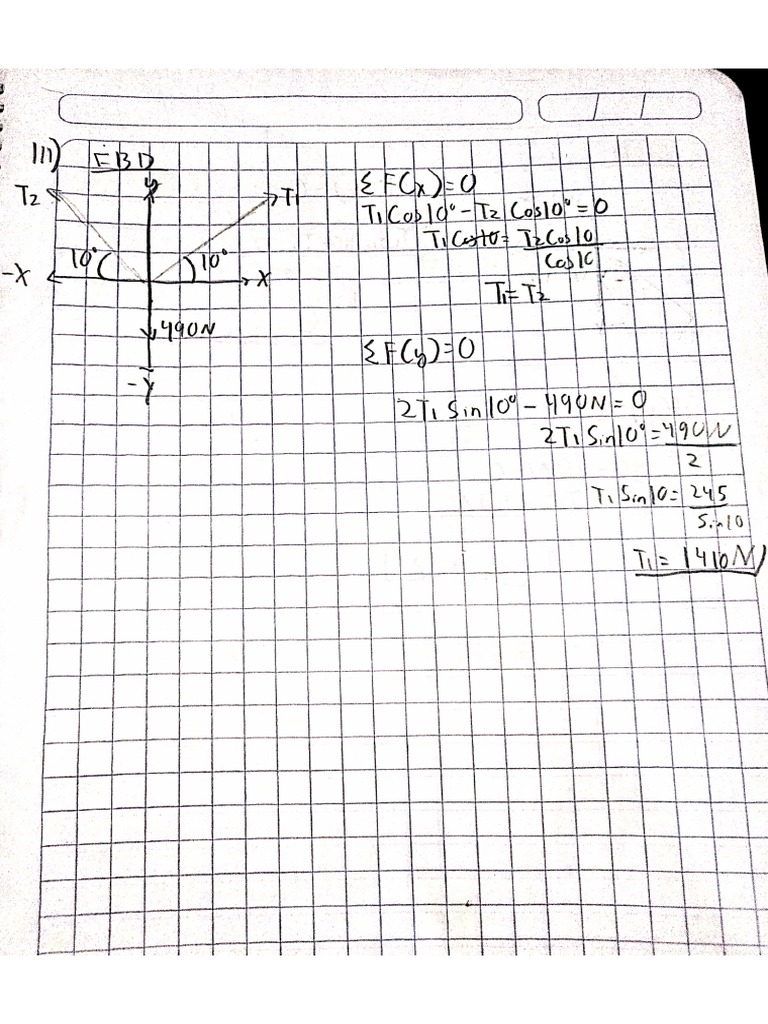 111) FBD
T2 y T1
10° 10°
-X X
490N
-Y
ΣF(x)=0
T1 Cos10° - T2 Cos10° = 0
T1 Cos10 = T2 Cos10
Cos10
T1 = T2
ΣF(y)=0
2T1 Sin10° - 490N = 0
2T1 Sin10° = 490N
2
T1 Sin10 = 245
Sin10
T1 = 1410N